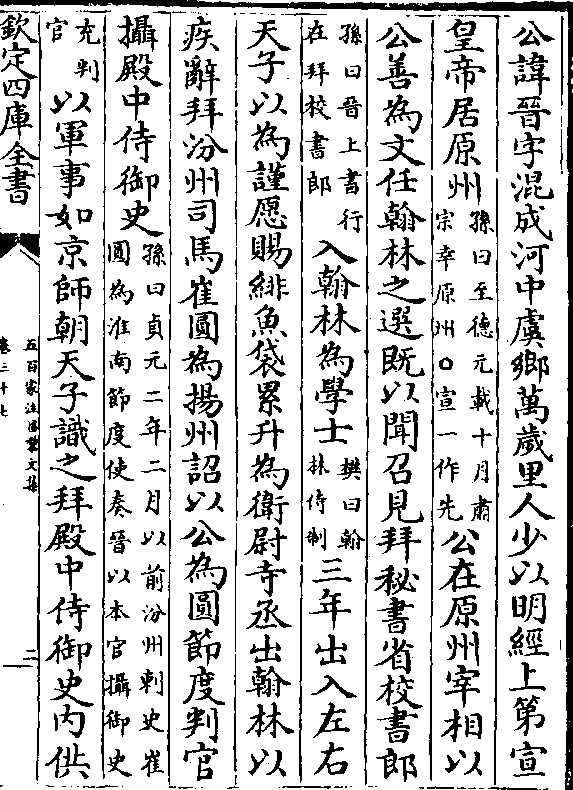 公諱晉字混成河中虞鄉萬歲里人少以明經上第宣
皇帝居原州孫曰至德元載十月肅宗幸原州○宣一作先公在原州宰相以
公善為文任翰林之選既以聞召見拜秘書省校書郎
孫曰晉上書行在拜校書郎入翰林為學士樊曰翰林待制三年出入左右
天子以為謹愿賜緋魚袋累升為衛尉寺丞出翰林以
疾辭拜汾州司馬崔圓為揚州詔以公為圓節度判官
攝殿中侍御史孫曰貞元二年二月以前汾州刺史崔圓為淮南節度使奏晉以本官攝御史
充判官以軍事如京師朝天子識之拜殿中侍御史内供
欽定四庫全書
五百家注昌黎文集
卷三十七
二